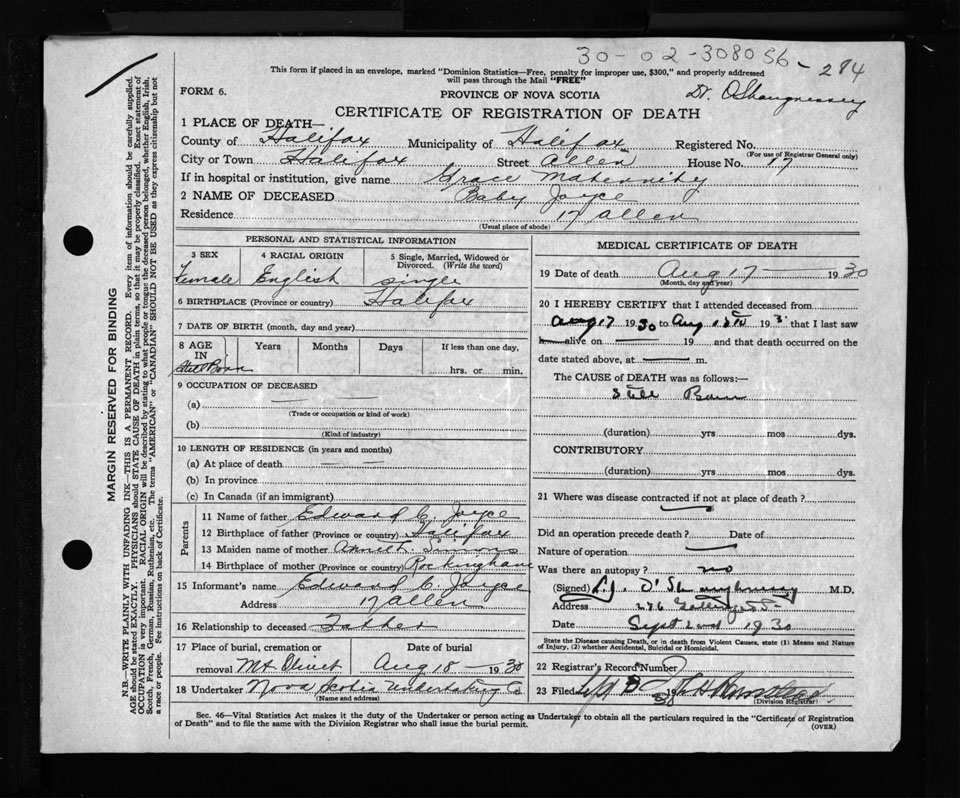 30-02-308056-284
This form if placed in an envelope, marked "Dominion Statistics—Free, penalty for improper use, $300," and properly addressed
will pass through the Mail "FREE"
FORM 6.
PROVINCE OF NOVA SCOTIA
Dr. O'Shaugnessey
CERTIFICATE OF REGISTRATION OF DEATH
1 PLACE OF DEATH—
County of Halifax Municipality of Halifax Registered No.
(For use of Registrar General only)
City or Town Halifax Street Allen House No. 17
If in hospital or institution, give name Grace Maternity
2 NAME OF DECEASED Baby Joyce
Residence 17 Allen
(Usual place of abode)
PERSONAL AND STATISTICAL INFORMATION
3 SEX
Female
4 RACIAL ORIGIN
English
5 Single, Married, Widowed or Divorced. (Write the word)
single
6 BIRTHPLACE (Province or country) Halifax
7 DATE OF BIRTH (month, day and year)
8 AGE IN Years Months Days If less than one day,
Still Born
hrs. or min.
9 OCCUPATION OF DECEASED
(a)
(Trade or occupation or kind of work)
(b)
(Kind of industry)
10 LENGTH OF RESIDENCE (in years and months)
(a) At place of death
(b) In province
(c) In Canada (if an immigrant)
Parents
11 Name of father Edward C. Joyce
12 Birthplace of father (Province or country) Halifax
13 Maiden name of mother
14 Birthplace of mother (Province or country) Rockingham
15 Informant's name Edward C. Joyce
Address 17 Allen
16 Relationship to deceased Father
17 Place of burial, cremation or removal Mt Olivet
Date of burial
Aug 18 1930
18 Undertaker Nova Scotia Undertaking Co
(Name and address)
MEDICAL CERTIFICATE OF DEATH
19 Date of death Aug 17 1930
(Month, day and year)
20 I HEREBY CERTIFY that I attended deceased from
Aug 17 1930 to Aug 193 that I last saw
alive on 19 and that death occurred on the
date stated above, at m.
The CAUSE of DEATH was as follows:—
Still Born
(duration) yrs mos dys.
CONTRIBUTORY
(duration) yrs mos dys.
21 Where was disease contracted if not at place of death?
Did an operation precede death? Date of
Nature of operation
Was there an autopsy? no
(Signed) O'Shaughnessy M.D.
Address
Date Sept 2nd 1930
State the Disease causing Death, or in death from Violent Causes, state (1) Means and Nature
of Injury, (2) whether Accidental, Suicidal or Homicidal.
22 Registrar's Record Number
23 Filed 19
(Division Registrar)
Sec. 46—Vital Statistics Act makes it the duty of the Undertaker or person acting as Undertaker to obtain all the particulars required in the "Certificate of Registration
of Death" and to file the same with the Division Registrar who shall issue the burial permit.
(OVER)
MARGIN RESERVED FOR BINDING
N.B.—WRITE PLAINLY WITH UNFADING INK—THIS IS A PERMANENT RECORD. Every item of information should be carefully supplied.
AGE should be stated EXACTLY. PHYSICIANS should STATE CAUSE OF DEATH in plain terms, so that it may be properly classified. Exact statement of
OCCUPATION is very important. RACIAL ORIGIN will be described by stating to what people or tongue the deceased person belonged, whether English, Irish,
Scotch, French, German, Russian, Ruthenian, etc. The terms "AMERICAN" or "CANADIAN" SHOULD NOT BE USED as they express citizenship but not
a race or people. See instructions on back of Certificate.